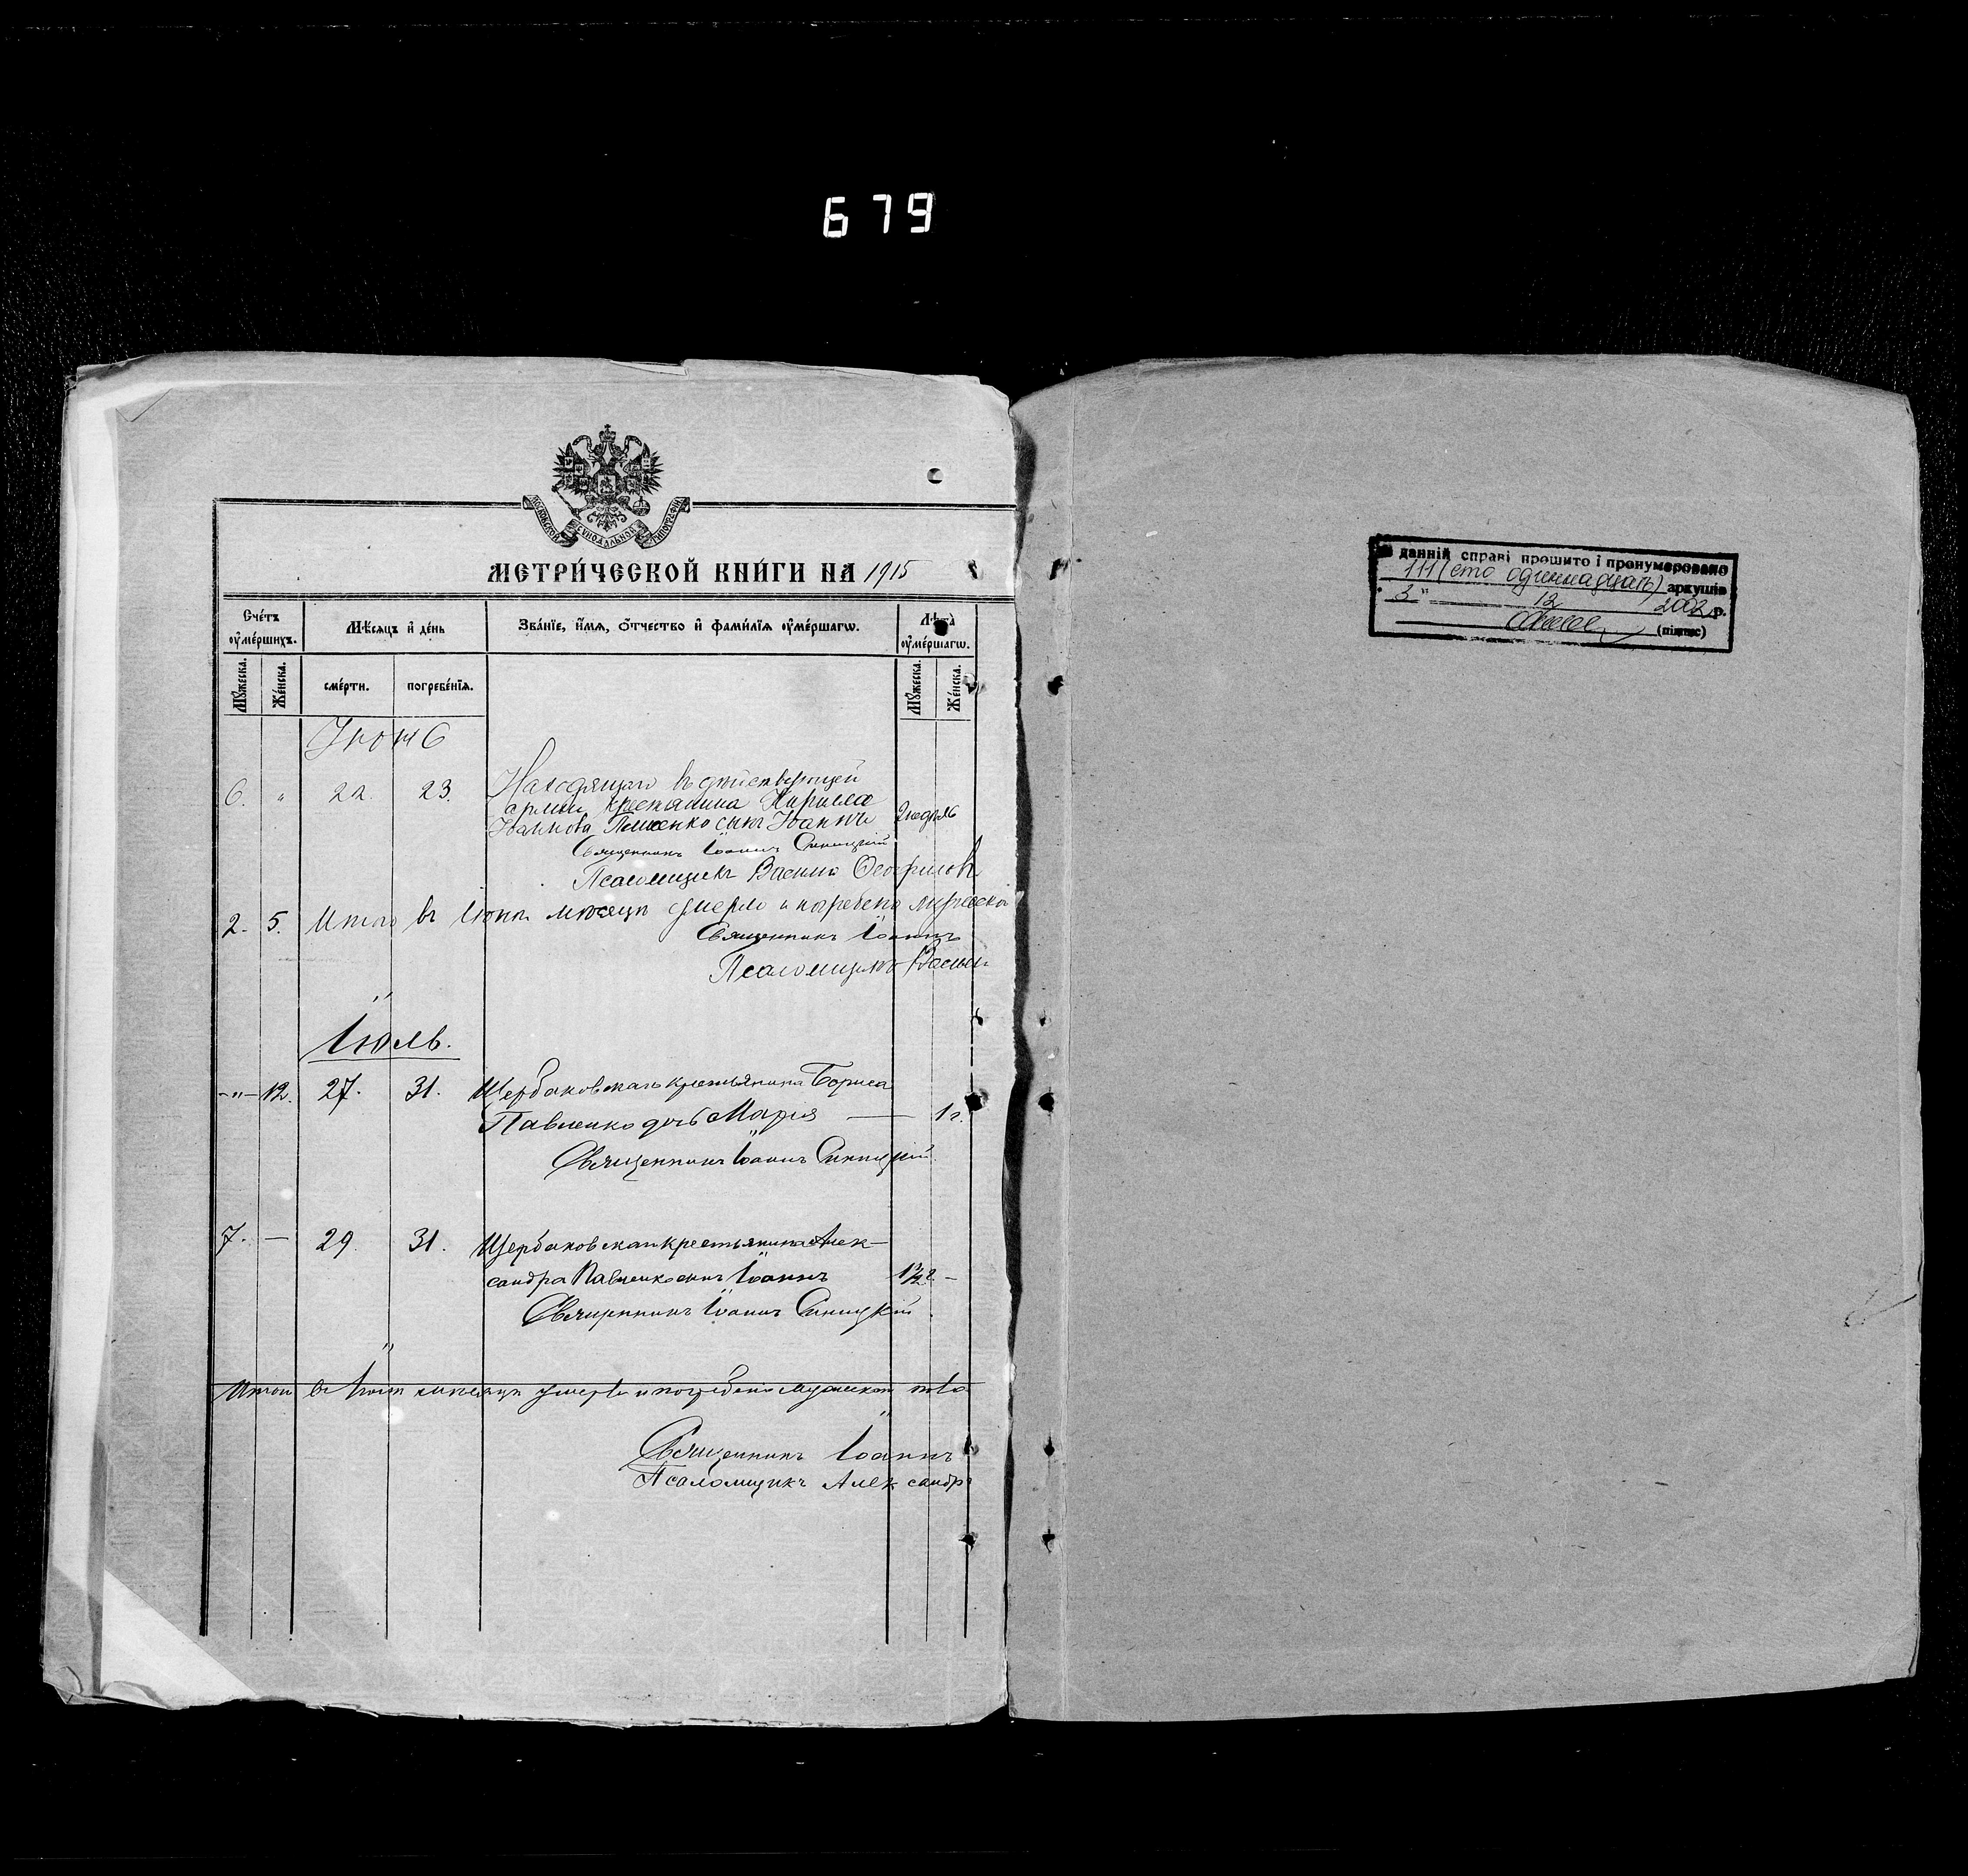 679
МОСКОВСКОЙ СѴНОДАЛЬНОЙ ТИПОГРАФІИ
МЕТРИ́ЧЕСКОЙ КНИ́ГИ НА 1915
Сче́тъ ѹ҆ме́ршихъ.
Мѣ́сяцъ и҆ де́нь
Зва́нїе, и҆́мя, ѻ҆́тчество и҆ фами́лїя ѹ҆ме́ршагѡ.
Лѣ́та ѹ҆ме́ршагѡ.
Мꙋ́жеска.
Же́нска.
сме́рти.
погребе́нїя.
Мꙋ́жеска.
Же́нска.
Іюнь
6. " 22. 23. Находящаго въ дѣйствующей
арміи крестьянина Кирилла
Іванова сынъ Іоаннъ 2 недѣль
Священникъ Іоаннъ Синицкій
Псаломщикъ Василій Ѳеофиловъ
2. 5. Итого въ Іюнѣ мѣсяцѣ умерло и погребено мужеска
Священникъ Іоаннъ
Псаломщикъ Василій
Іюль.
-"- 12. 27. 31. Щербаковскаго крестьянина Бориса
Павленко дочь Марія — 1 г.
Священникъ Іоаннъ Синицкій
7. — 29. 31. Щербаковскаго крестьянина Алек-
сандра Павленко сынъ Іоаннъ 1½ г. -
Священникъ Іоаннъ Синицкій
Итого въ Іюлѣ мѣсяцѣ умерло и погребено мужеска пола
Священникъ Іоаннъ
Псаломщикъ Александръ
В данній справі прошито і пронумеровано
111 (сто одиннадцать) аркушів
"3" 12 2002 р.
(підпис)